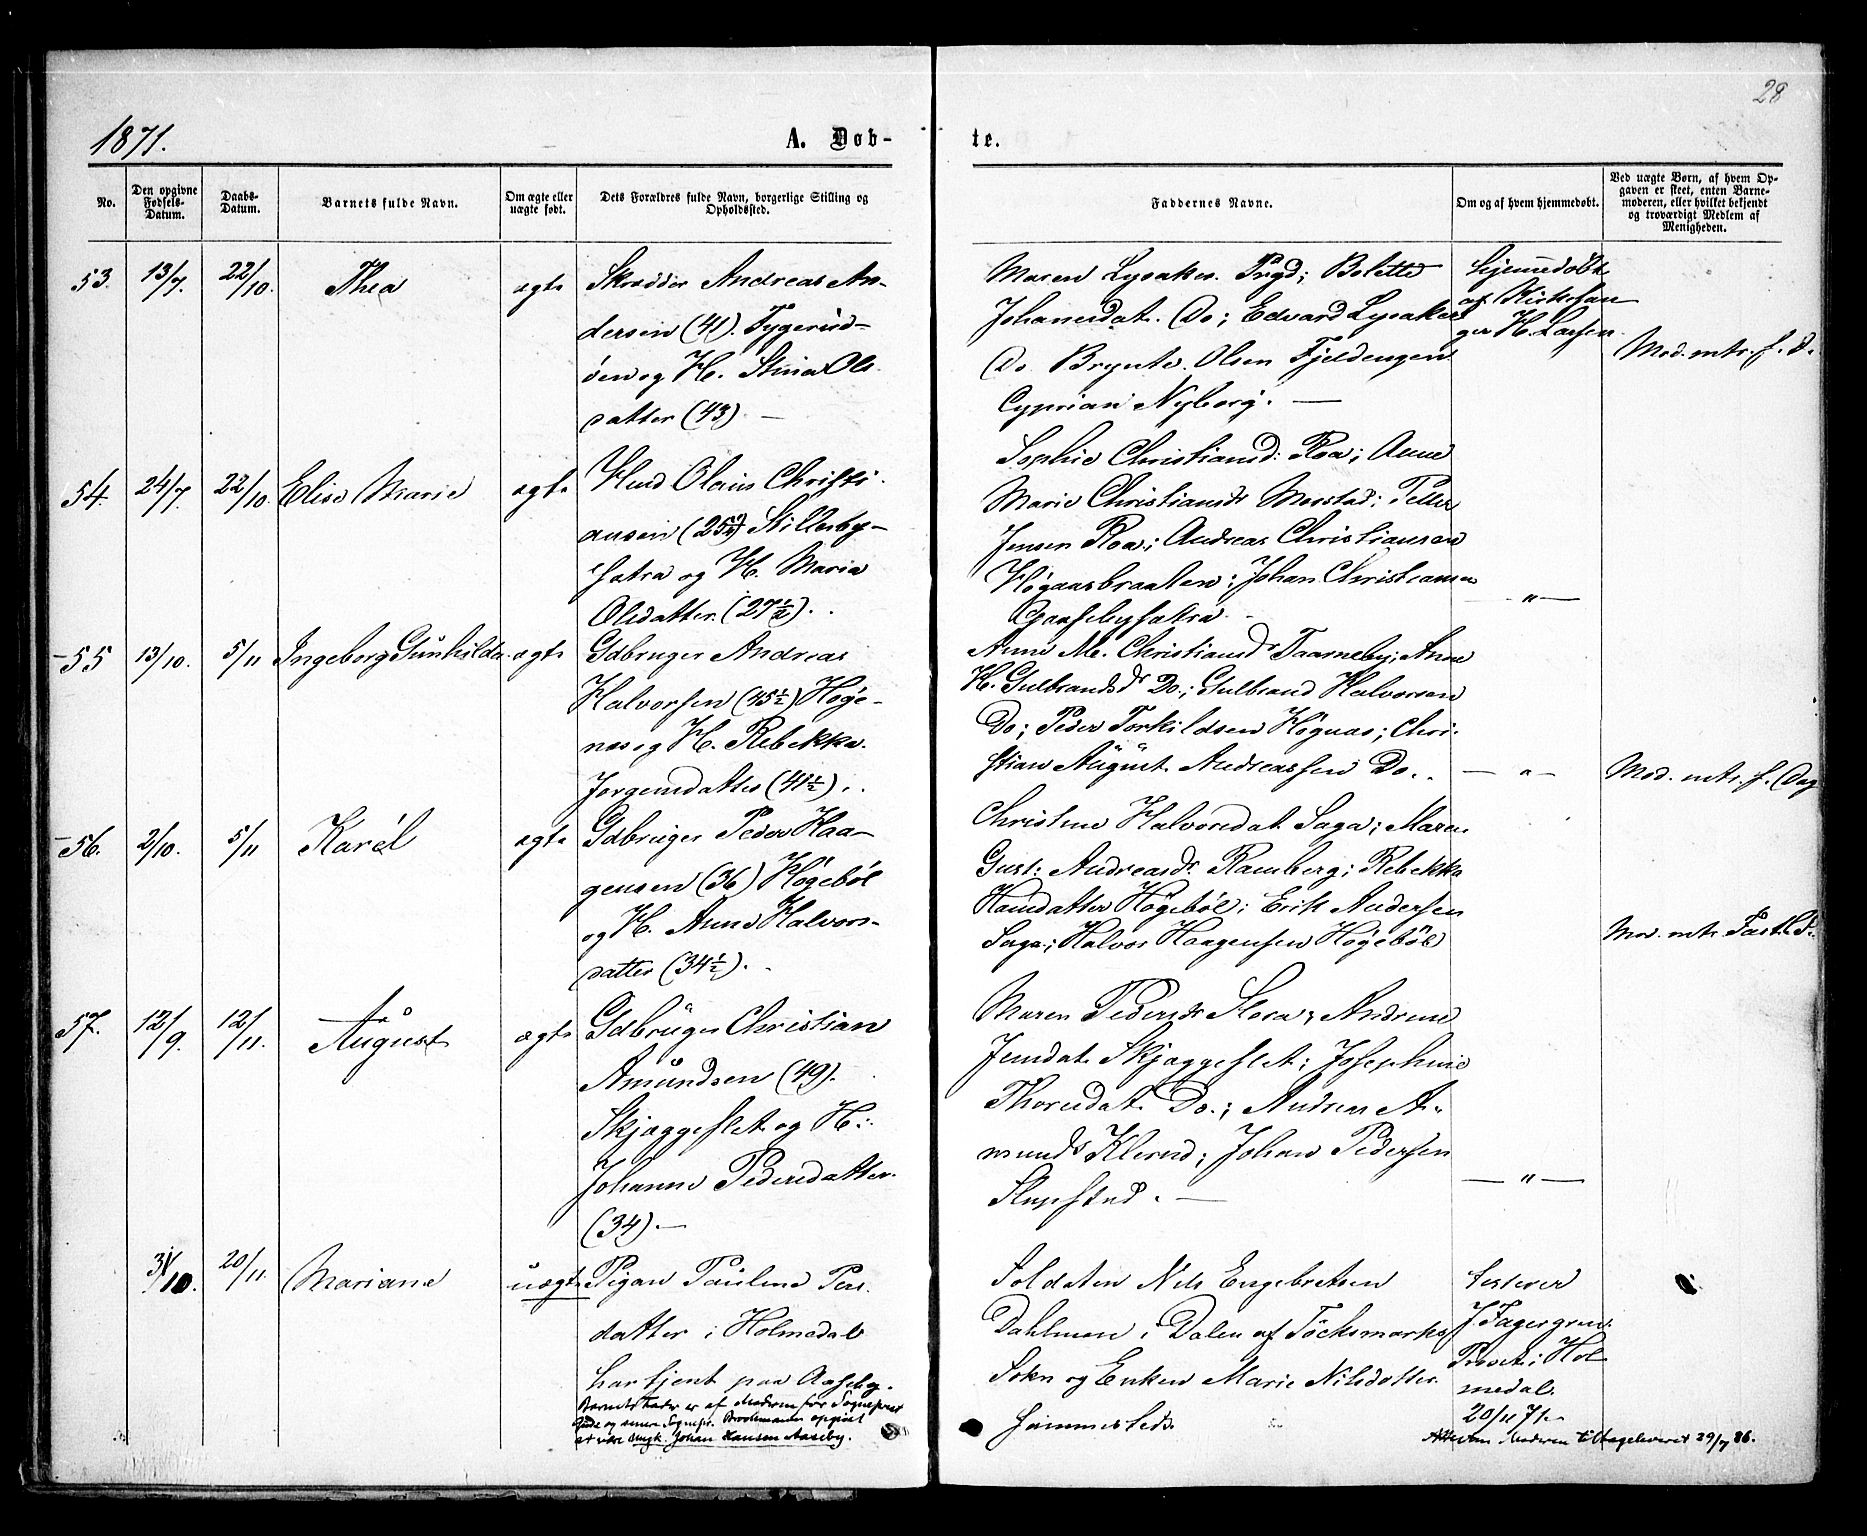 28
1871.
A. Døb-
te.
No.
Den opgivne Fødsels-Datum.
Daabs-Datum.
Barnets fulde Navn.
Om ægte eller uægte født.
Dets Forældres fulde Navn, borgerlige Stilling og Opholdssted.
Faddernes Navne.
Om og af hvem hjemmedøbt.
Ved uægte Børn, af hvem Opgaven er skeet, enten Barnemoderen, eller hvilket bekjendt og troværdigt Medlem af Menigheden.
53. 13/7. 22/10. Thea ægte
Skrædder Andreas An-
dersen (41). Tygerud-
øen og H. Stina Ols-
datter (43). —
Maren Lysaker. Prgd; Bolette
Johanesdat. Do; Edvard Lysaker
Do Brynte. Olsen Fjeldengen
Cyprian Nyborg. —
hjemmedøbt
af Kirkesan
ger H. Larsen.
Mod. intr. f. D.
54. 24/7. 22/10. Elise Marie ægte
Hmd Olaus Christi-
ansen (25 1/2) Stillesby-
sætra og H. Maria
Olsdatter. (27 1/2).
Sophie Christiansd: Roa; Anne
Marie Christiansdr Mosstad; Peder
Jensen Roa; Andreas Christiansen
Høgaasbraaten; Johan Christiansen
Gaasebysætra.
— " —
55 13/10. 5/11 Ingeborg Gunhilda ægte
Gdbruger Andreas
Halvorsen (45 1/2) Høge-
næs og H. Rebekka
Jørgensdatter (41 1/2).
Anne M. Christiansdr Taarneby; Anne
H. Gulbrandsdr Do; Gulbrand Halvorsen
Do; Peder Torkildsen Høgnæs; Chri-
stian August Andreassen Do.
— " —
Mod. intr. f. Dag
56. 2/10. 5/11 Karél ægte
Gdbruger Peder Haa-
gensen (36) Høgebøl
og H. Anne Halvors-
datter (34 1/2).
Christine Halvorsdat Saga; Maren
Gust: Andreasdr Ramberg; Rebekka
Hansdatter Høgebøl; Erik Andersen
Saga; Halvor Haagensen Høgebøl
Mod. intr.
57. 12/9. 12/11. August ægte
Gdbruger Christian
Amundsen (49).
Skjæggeslet og H:
Johanne Pedersdatter.
(34).—
Maren Pedersdr Slora; Andrine
Jensdat. Skjæggeslet; Josephine
Thorsdat. Do.; Andreas A-
munds Klerud; Johan Pedersen
Slupstad. —
— " —
31/10. 20/11. Mariane uægte
Pigan Pauline Pers
datter i Holmedal
har tjent paa Aaseby.
Barnefader er af Moderen for Sognepræst
og senere Sognepr. opgivet
at være Johan Hansen Aaseby.
Soldaten Nils Engebretsen
Dahlman i Dalen af Töcksmarks
Sokn og Enken Marie Nilsdotter
Hammersted
testerer
J. Fagergren.
Prost i Hol
medal.
20/11 71.
Attest Moderen tilbageleveret 29/7 86.